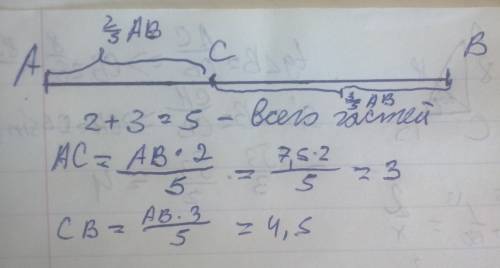 2/5 AB
A C B
3/5 AB
2+3=5 - всего частей
AC = AB·2/5 = 7,5·2/5 = 3
CB = AB·3/5 = 4,5